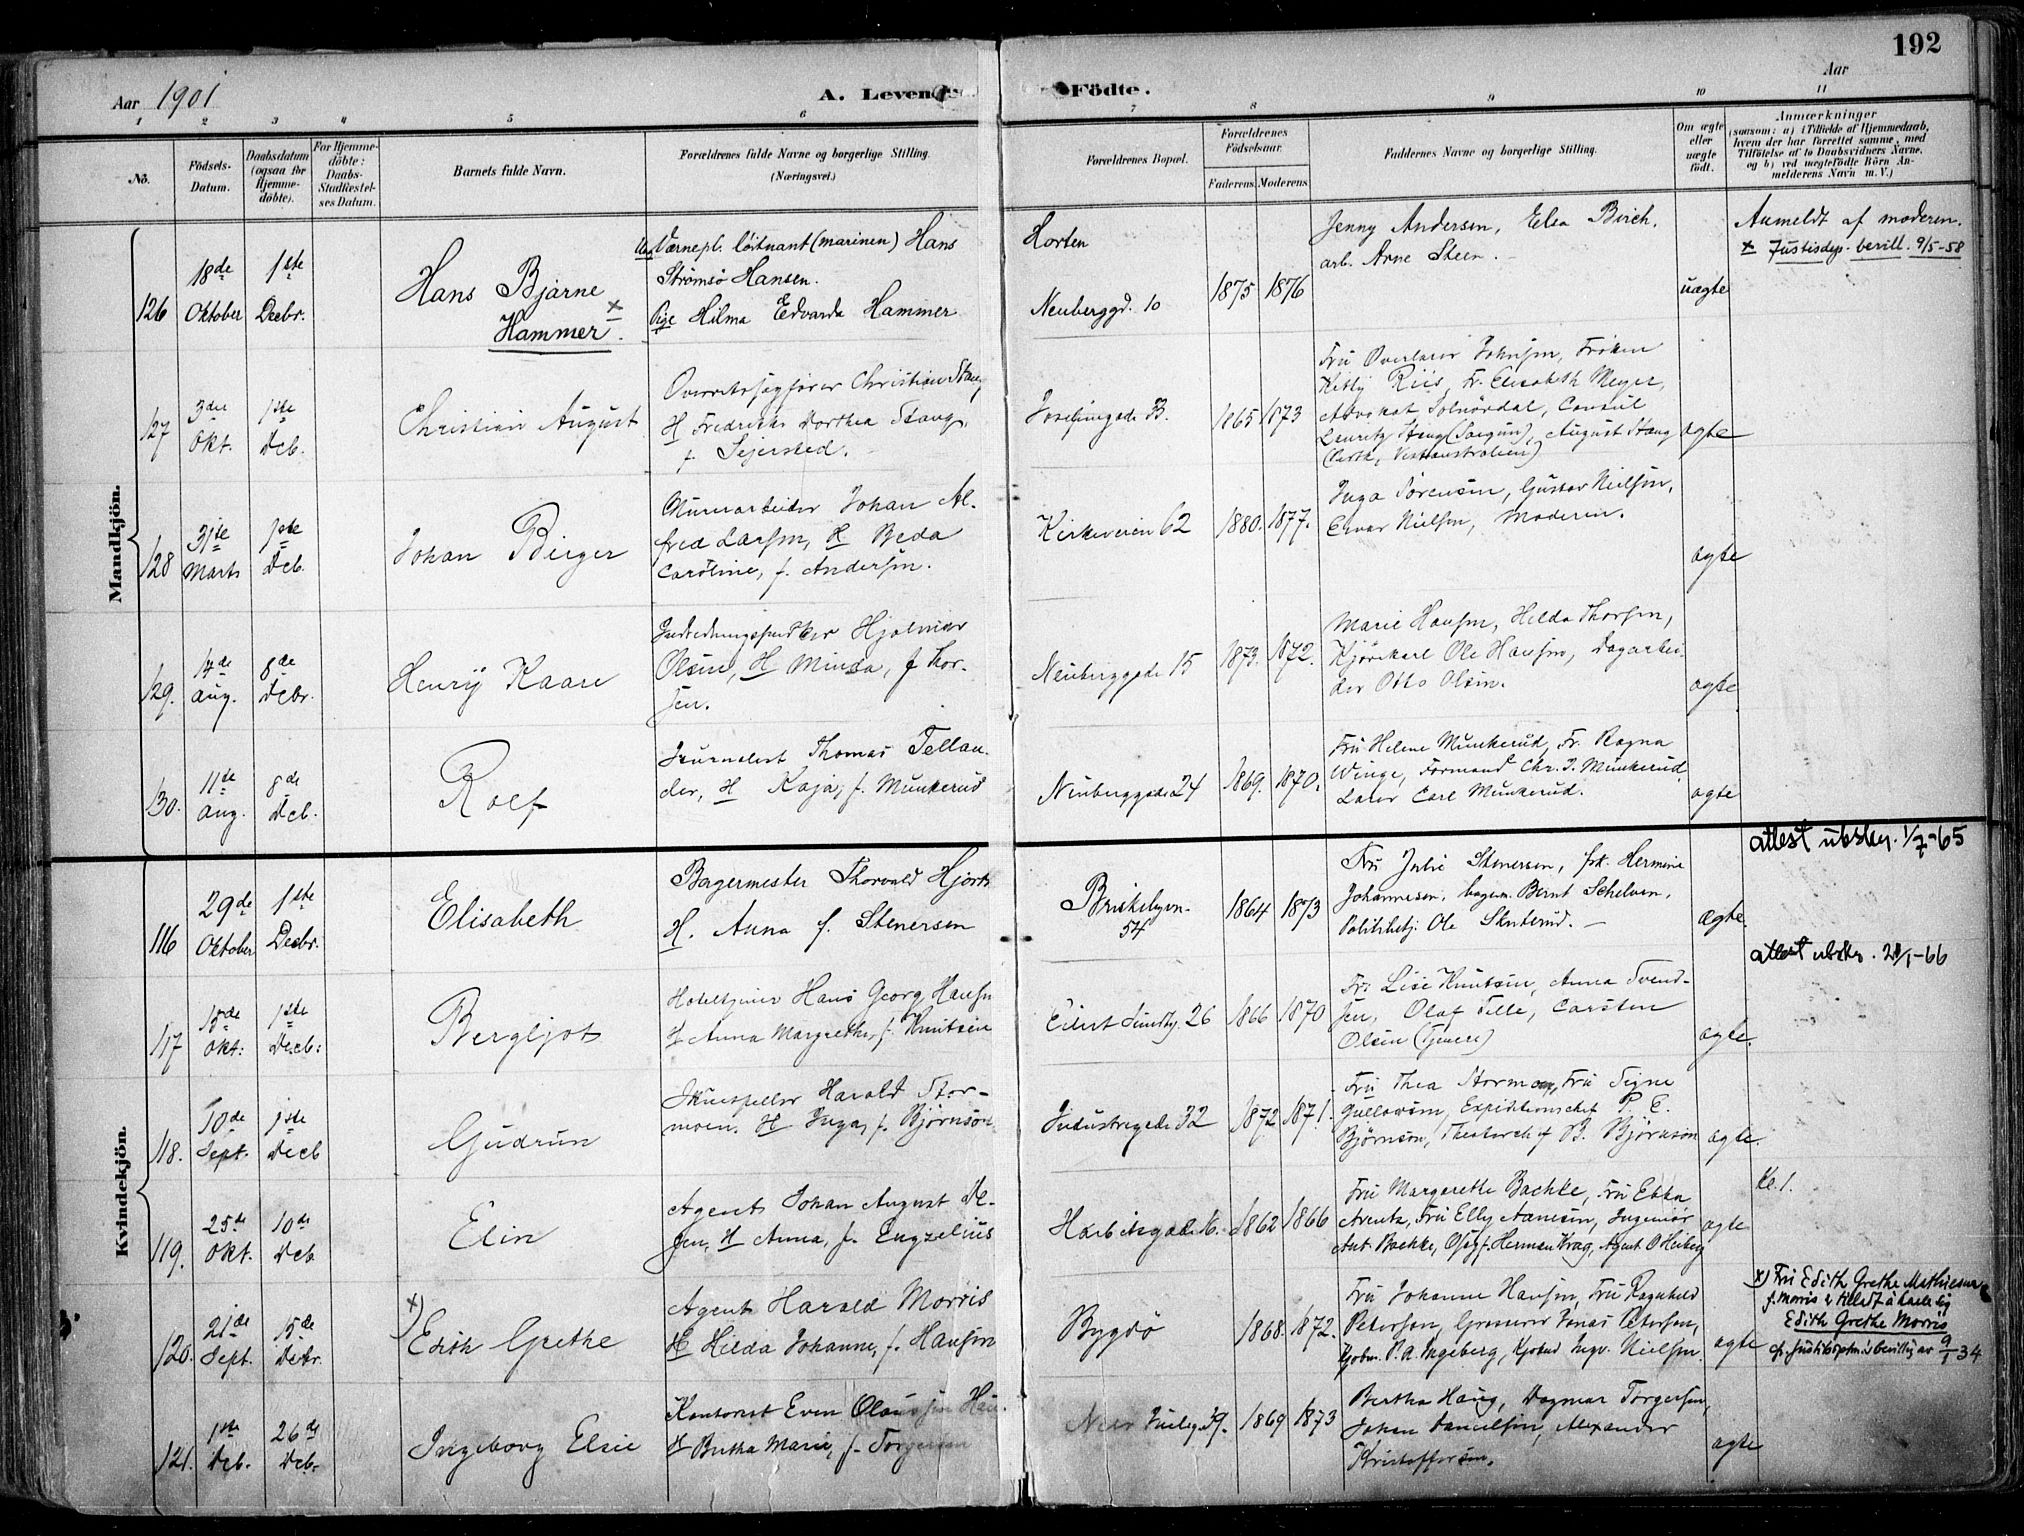 192
Aar 1901
A. Levende Födte.
Aar
1 2 3 4 5 6 7 8 9 10 11
No.
Födsels-Datum.
Daabsdatum (ogsaa for Hjemme-döbte).
For Hjemme-döbte: Daabs-Stadfæstel-ses Datum.
Barnets fulde Navn.
Forældrenes fulde Navne og borgerlige Stilling.
(Næringsvei.)
Forældrenes Bopæl.
Forældrenes Födselsaar.
Faderens. Moderens.
Faddernes Navne og borgerlige Stilling.
Om ægte eller uægte födt.
Anmærkninger
(saasom: a) i Tilfælde af Hjemmedaab,
hvem der har forrettet samme, med
Tilföielse af to Daabsvidners Navne,
og b) ved uægtefödte Börn An-
melderens Navn m. V.)
Mandkjön.
126
18de Oktober
1ste Decbr.
Hans Bjarne
Hammer x
Værnepl. löitnant (marinen) Hans
Strømsö Hansen.
Pige Hilma Edvarda Hammer
Horten
Neuberggd. 10
1875 1876
Jenny Andersen, Elsa Birch,
arb. Arne Steen.
uægte
Anmeldt af moderen.
x Justisdep. bevill. 9/5-58
127
3die Okt.
1ste Dcb.
Christian August
Overretssagfører Christian Stang
H Fredrikke Dorthea Stang,
f. Sejersted.
Josefinegade 33.
1865 1873
Fru Overlærer Johnsen, Frøken
Kitty Riis, Fr. Elisabeth Meyer,
Advokat Solnördal, Consul
Lauritz Stang (Saigun), August Stang
(Perth, Vestaustralien)
ægte
128
31te Marts
1ste Dcb.
Johan Birger
Murerarbeider Johan Al-
fred Larsen, H Beda
Caroline, f. Andersen.
Kirkeveien 62
1880. 1877.
Inga Sörensen, Gustav Nielsen,
Einar Nielsen, Moderen.
ægte
129.
14de Aug.
8de Dcbr.
Henrÿ Kaare
Hjalmar
Olsen, H Minda, f. Thor-
sen.
Neuberggade 15
1873. 1872.
Marie Hansen, Hilda Thorsen,
Kjörekarl Ole Hansen, Dagarbei-
der Otto Olsen.
ægte
130.
11de Aug.
8de Dcb.
Rolf
Journalist Thomas Tellan-
der, H Kaja, f. Munkerud
Neuberggade 24
1869. 1870.
Fru Helene Munkerud, Fr. Ragna
Winge, Formand Chr. J. Munkerud
Lærer Carl Munkerud.
ægte
Kvindekjön.
116
29de Oktober
1ste Decbr.
Elisabeth
Bagermester Thorvald Hjorth
H. Anna f. Stenersen
Briskebyvn. 54
1864 1873
Fru Julie Stenersen, frk. Hermine
Johannesen, bagerm. Bernt Schelven,
Politibetj. Ole Skuterud.
ægte.
attest utsten. 1/7-65
117
15de Okt.
1ste Decb.
Bergljot
Hoteltjener Hans Georg Hansen
H Anna Margrethe, f. Knutsen
Eilert Sundtg. 26
1866 1870
Fru Lise Knutsen, Anna Svend-
sen, Olaf Tille, Carsten
Olsen (Tjenere)
ægte.
118.
10de Sept.
1ste Decb
Gudrun
Skuespiller Harald Stor-
moen. H Inga, f. Björnson
Industrigade 32
1872 1871.
Fru Thea Stormoen, Fru Signe
Gullowsen, Expeditionschef P. E.
Björnson, Theaterchef B. Björnson
ægte.
119.
25de Okt.
10de Dcb
Elin
Agent Johan August De-
jen, H Anna, f. Engzelius
Harbitzgade 16.
1862 1866
Fru Margarethe Backke, Fru Ebba
Arentz, Fru Elly Aanesen, Ingeniør
Ant. Backke, Osagf. Herman Krag, Agent O Heiberg
ægte
Kl. 1.
120.
21de Sept.
15de Dcbr.
x) Edith Grethe
Agent Harald Morris
H Hilda Johanne, f. Hansen
Bygdö
1868. 1872.
Fru Johanne Hansen, Fru Ragnhild
Petersen, Grosserer Jonas Petersen,
Kjöbm. P. A. Ingeberg, Kjøbmd Ingv. Nielsen
ægte
x) Fru Edith Grethe Mathiesen
f. Morris er tilladt å kalle sig
Edith Grethe Morris
av 9/1 34
121.
1ste Dcb.
26de Dcbr
Ingeborg Elsie
Kontorist Even Olaussen Hau-
H Bertha Marie, f. Torgersen
39.
1869 1873
Bertha Haug, Dagmar Torgersen,
Johan Danielsen, Alexander
Kristoffersen.
ægte